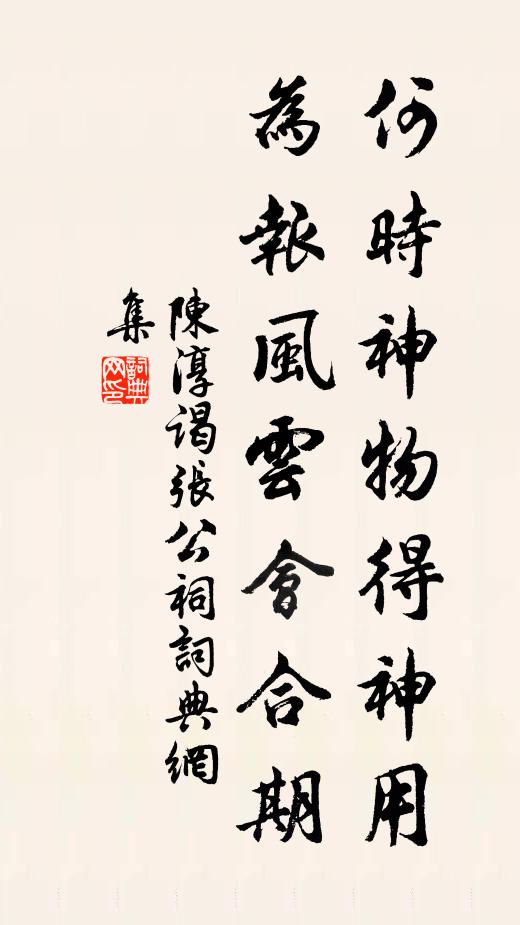 何時神物得神用
為報風雲會合期
陳淳謁張公祠詞典網
集
詞典網印